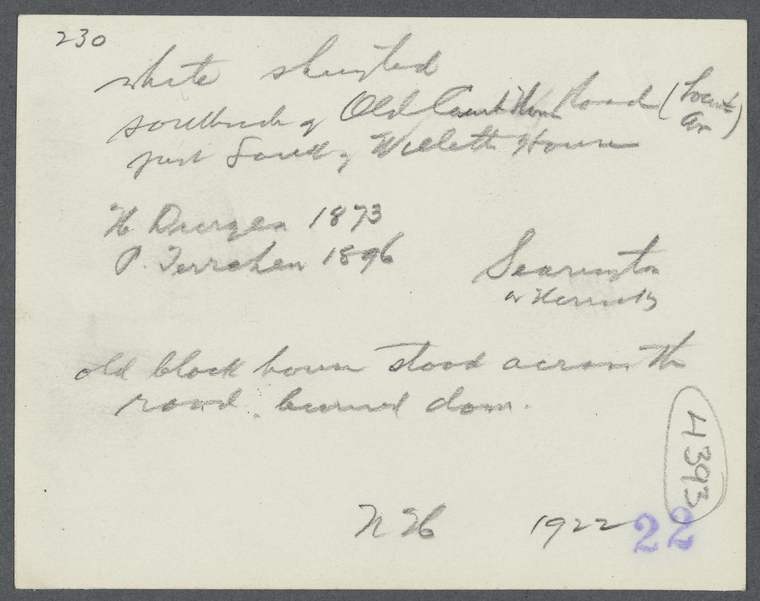 230
white shingled
southside of Old Court House Road (Locust Av)
just South of Willetts House
H. 1873
P. 1896
Searington
or
old block house stood across the
road. burned down.
4393
N H 1922
22